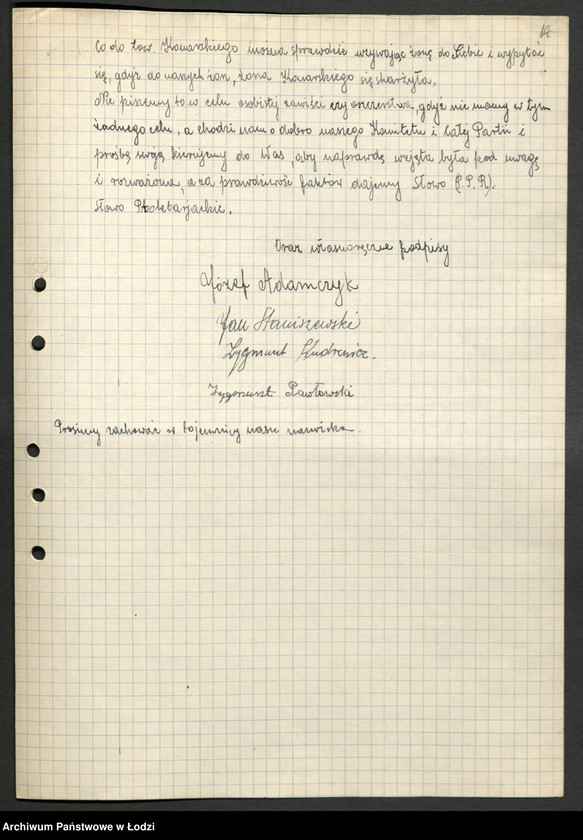 Co do tow. Konarskiego można sprawdzić wzywając żonę do Siebie i wypytać
się, gdyż do naszych żon, żona Konarskiego się skarżyła,
Nie piszemy to w celu osobistej zawiści czy oszczerstwa, gdyż nie mamy w tym
żadnego celu, a chodzi nam o dobro naszego Komitetu i całej Partii i
prośbę swoją kierujemy do Was, aby naprawdę wzięta była pod uwagę
i rozważona, a za prawdziwość faktów dajemy Słowo (P.P.R).
Słowo Proletarjackie.
Oraz własnoręczne podpisy
Józef Adamczyk
Jan Staniszewski
Zygmunt
Zygmunt Pawłowski
Prosimy zachować w tajemnicy nasze nazwiska.
Archiwum Państwowe w Łodzi